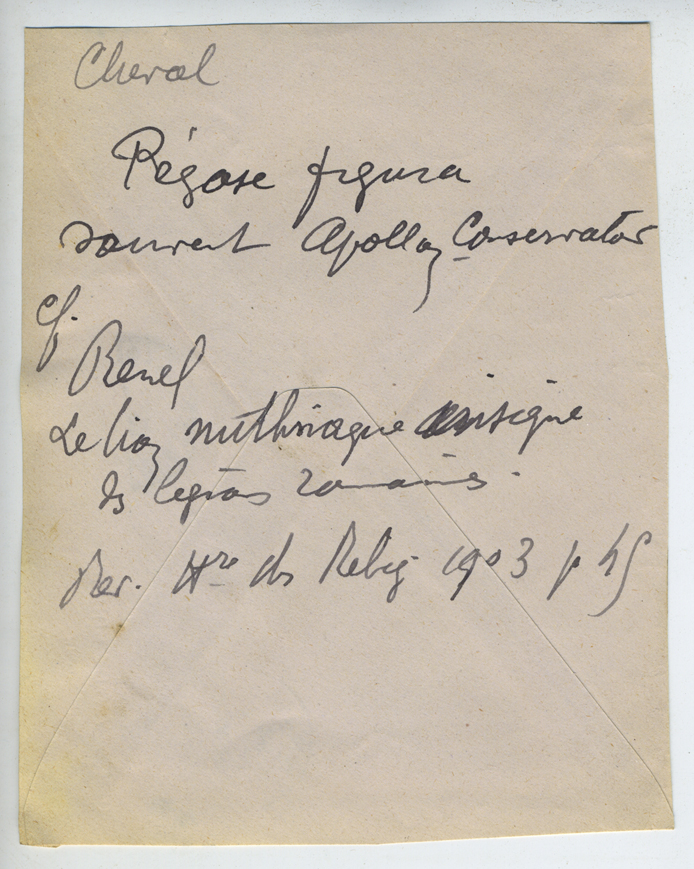 Cheval
Pégase figura
souvent Apollon Conservator
cf.
Renel
Le lion mithriaque enseigne
des légions romaines.
Rev. Hre des Relig. 1903 p 45